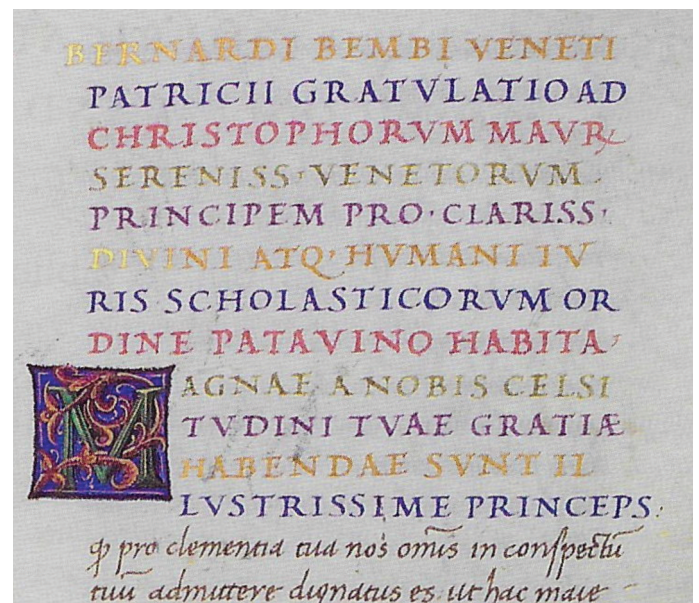 BERNARDI BEMBI VENETI
PATRICII GRATVLATIO AD
CHRISTOPHORVM MAVRꝝ
SERENISS· VENETORVM
PRINCIPEM PRO· CLARISS·
DIVINI ATQ’ HVMANI IV
RIS SCHOLASTICORVM OR
DINE PATAVINO HABITA·
MAGNAE A NOBIS CELSI
TVDINI TVAE GRATIÆ
HABENDAE SVNT IL
LVSTRISSIME PRINCEPS·
ꝙ pro clementia tua nos om̅is in conſpectū
tuū admittere dignatus es. ut hac maie-